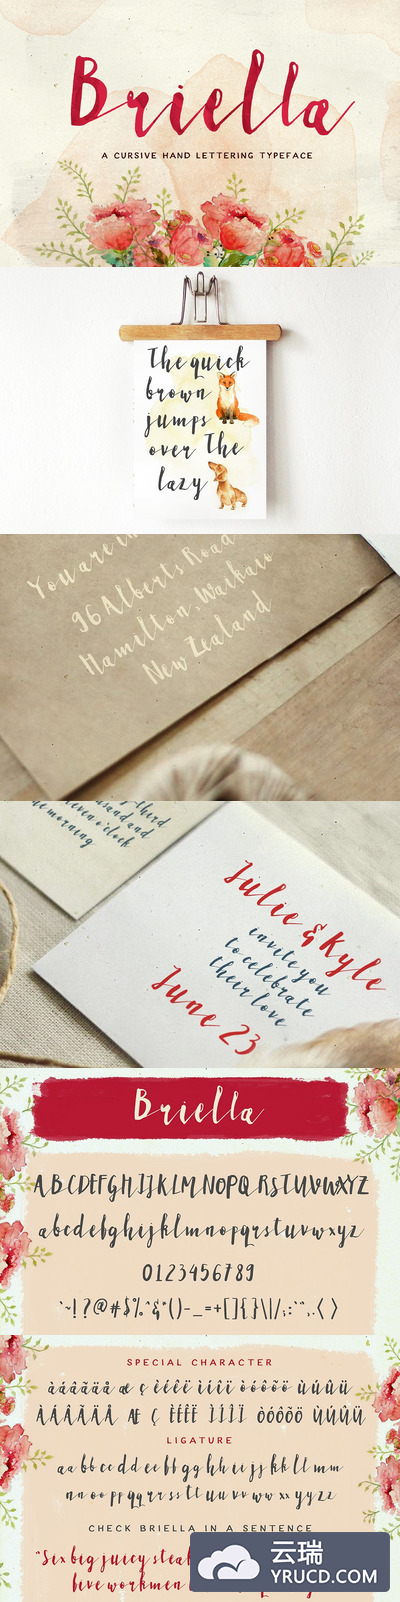 Briella
A CURSIVE HAND LETTERING TYPEFACE
The quick
brown
jumps
over The
lazy
You are in
96 Alberts Road
Hamilton, Waikato
New Zealand
and third
eleven o'clock
the morning
Julie & Kyle
invite you
to celebrate
their love
June 23
Briella
ABCDEFGHIJKLMNOPQRSTUVWXYZ
abcdefghijklmnopqrstuvwxyz
0123456789
`~!?@#$%^&*()-_=+[]{}\|/;:'",.<>
SPECIAL CHARACTER
àáâãäå æ ç èéêë ìíîï òóôõö ùúûü
ÀÁÂÃÄÅ Æ Ç ÈÉÊË ÌÍÎÏ ÒÓÔÕÖ ÙÚÛÜ
LIGATURE
aa bb cc dd ee ff gg hh ii jj kk ll mm
nn oo pp qq rr ss tt uu vv ww xx yy zz
CHECK BRIELLA IN A SENTENCE
"Six big juicy
five workmen
云瑞
YRUCD.COM